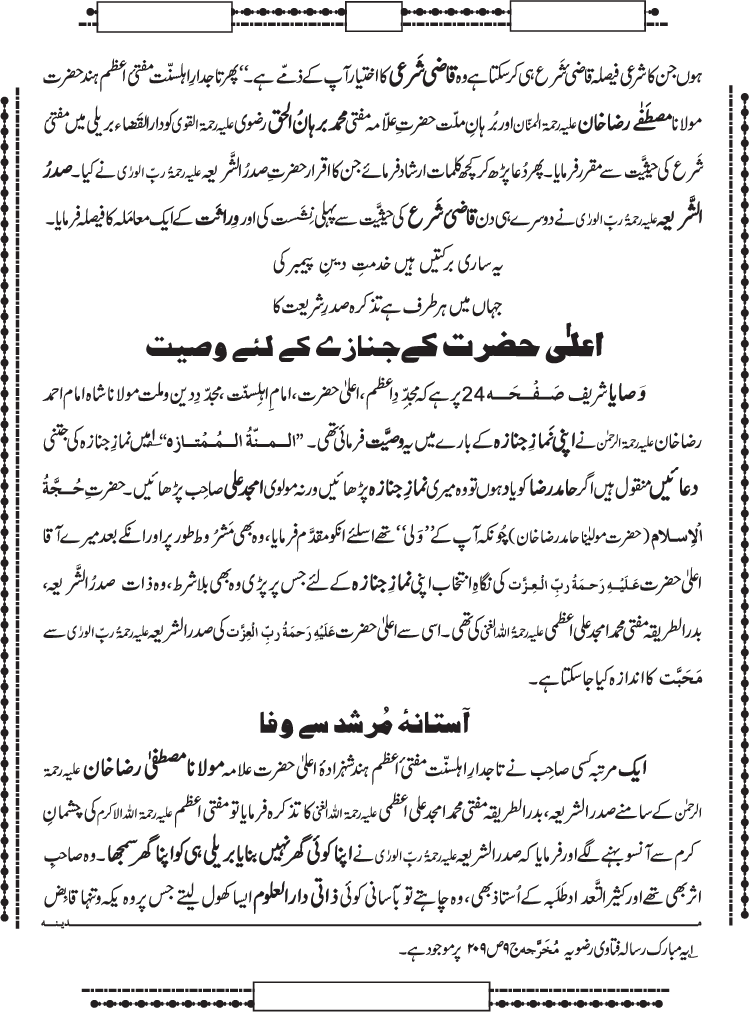 ہوں جن کا شرعی فیصلہ قاضیِ شَرع ہی کرسکتا ہے وہ قاضیِ شَرعی کا اختیار آپ کے ذمّے ہے۔‘‘ پھر تاجدارِ اہلسنّت مفتیٔ اعظم ہند حضرت
مولانا مصطَفٰے رضا خان علیہ رحمۃ المنّان اور بُرہانِ ملّت حضرتِ علّامہ مفتی محمد برہانُ الحق رضوی علیہ رحمۃ القوی کو دارُ القَضاء بریلی میں مفتیٔ
شَرع کی حیثیّت سے مقرر فرمایا۔ پھر دُعا پڑھ کر کچھ کلمات ارشاد فرمائے جن کا اقرار حضرتِ صدرُ الشَّریعہ علیہ رحمۃُ ربِّ الورٰی نے کیا۔ صدرُ
الشَّریعہ علیہ رحمۃُ ربِّ الورٰی نے دوسرے ہی دن قاضیِ شَرع کی حیثیّت سے پہلی نِشَست کی اور وِراثت کے ایک معامَلہ کا فیصلہ فرمایا۔
یہ ساری برکتیں ہیں خدمتِ دینِ پیمبر کی
جہاں میں ہر طرف ہے تذکرہ صدرِ شریعت کا
اعلٰی حضرت کے جنازے کے لئے وصیت
وَصایا شریف صَفْحَہ 24 پر ہے کہ مجدِّدِ اعظم، اعلیٰ حضرت، امامِ اہلِسنّت، مجدِّدِ دین و ملت مولانا شاہ امام احمد
رضا خان علیہ رحمۃ الرحمٰن نے اپنی نَمازِ جنازہ کے بارے میں یہ وصیّت فرمائی تھی۔ ’’المنّۃُ المُمْتازہ‘‘ ۱؎ میں نمازِ جنازہ کی جتنی
دعائیں منقول ہیں اگر حامد رضا کو یاد ہوں تو وہ میری نمازِ جنازہ پڑھائیں ورنہ مولوی امجد علی صاحِب پڑھائیں۔ حضرتِ حُجَّۃُ
الْاِسلام (حضرت مولیٰنا حامد رضا خان) چُونکہ آپ کے ’’وَلی‘‘ تھے اسلئے انکو مقدَّم فرمایا، وہ بھی مَشرُوط طور پر اور انکے بعد میرے آقا
اعلیٰ حضرت عَلَیْہِ رَحمَۃُ ربِّ الْعِزَّت کی نگاہِ انتخاب اپنی نمازِ جنازہ کے لئے جس پر پڑی وہ بھی بلاشرط، وہ ذات صدرُ الشَّریعہ،
بدرالطریقہ مفتی محمد امجد علی اعظمی علیہ رحمۃُ اللہ الغنی کی تھی۔ اسی سے اعلیٰ حضرت عَلَیْہِ رَحمَۃُ ربِّ الْعِزَّت کی صدرالشریعہ علیہ رحمۃُ ربِّ الورٰی سے
مَحَبَّت کا اندازہ کیا جاسکتا ہے۔
آستانۂ مُرشد سے وفا
ایک مرتبہ کسی صاحِب نے تاجدارِ اہلِسنّت مفتیٔ اعظم ہند شہزادۂ اعلیٰ حضرت علامہ مولانا مصطفٰی رضا خان علیہ رحمۃ
الرحمٰن کے سامنے صدرالشریعہ، بدرالطریقہ مفتی محمد امجد علی اعظمی علیہ رحمۃ اللہ الغنی کا تذکرہ فرمایا تو مفتی اعظم علیہ رحمۃ اللہ الاکرم کی چشمانِ
کرم سے آنسو بہنے لگے اور فرمایا کہ صدرالشریعہ علیہ رحمۃُ ربِّ الورٰی نے اپنا کوئی گھر نہیں بنایا بریلی ہی کو اپنا گھر سمجھا۔ وہ صاحبِ
اثر بھی تھے اور کثیرُ التَّعداد طَلَبہ کے اُستاذ بھی، وہ چاہتے تو بآسانی کوئی ذاتی دارالعلوم ایسا کھول لیتے جس پر وہ یکہ و تنہا قابِض
مـــدینـــہ
۱؎ یہ مبارک رسالہ فتاوی رضویہ مُخَرَّجہ ج۹ ص ۲۰۹ پر موجود ہے۔